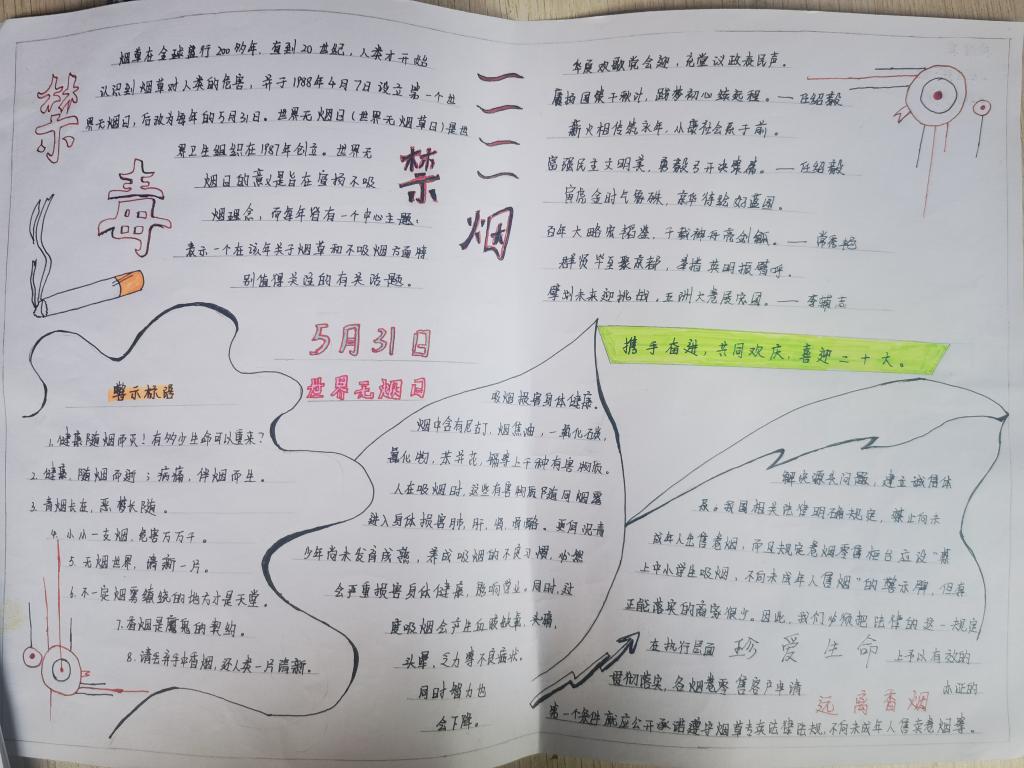 禁
毒
禁
烟
烟草在全球盛行200多年,直到20世纪,人类才开始
认识到烟草对人类的危害,并于1988年4月7日设立第一个世
界无烟日,后改为每年的5月31日。世界无烟日(世界无烟草日)是世
界卫生组织在1987年创立。世界无
烟日的意义是旨在宣扬不吸
烟理念,而每年皆有一个中心主题,
表示一个在该年关于烟草和不吸烟方面特
别值得关注的有关话题。
5月31日
世界无烟日
警示标语
1.健康随烟而灭!有多少生命可以重来?
2.健康,随烟而逝;病痛,伴烟而生。
3.青烟长在,恶梦长随。
4.小小一支烟,危害万万千。
5.无烟世界,清新一片。
6.不一定烟雾缭绕的地方才是天堂。
7.香烟是魔鬼的契约。
8.请丢弃手中香烟,还人类一片清新。
吸烟损害身体健康。
烟中含有尼古丁,烟焦油,一氧化碳,
氰化物,苯并芘,镉等上千种有害物质。
人在吸烟时,这些有害物质随同烟雾
进入身体损害肺,肝,肾,胃等器官。更何况青
少年尚未发育成熟,养成吸烟的不良习惯,必然
会严重报害身体健康,影响学业。同时,过
度吸烟会产生血液缺氧,头痛,
头晕,乏力等不良症状。
同时智力也
会下降。
华夏欢歌党会迎,充堂议政表民声。
赓扬国策千秋计,踔梦初心续起程。— 任绍毅
薪火相传続永年,小康社会系于前。
富强民主文明美,勇毅弓开决策篇。— 任绍毅
寅虎金时气象殊,京华待绘好蓝图。
百年大略宏韬塞,千载神舟亮剑瓠。— 常秀艳
群贤毕至聚京都,举措英明振臂呼。
擘划未来迎挑战,亚洲大老展宏图。— 李瑞志
携手奋进,共同欢庆,喜迎二十大。
解决源头问题,建立诚信体
系。我国相关法律明确规定,禁止向未
成年人出售卷烟,而且规定卷烟零售柜台应设“禁
止中小学生吸烟,不向未成年人售烟”的警示牌,但真
正能落实的商家很少。因此,我们必须把法律的这一规定
在执行层面 珍爱生命 上予以有效的
贯彻落实,各烟卷零售客户申请 远离香烟 办证的
第一个条件就应公开承诺遵守烟草专卖法律法规,不向未成年人售卖卷烟等。